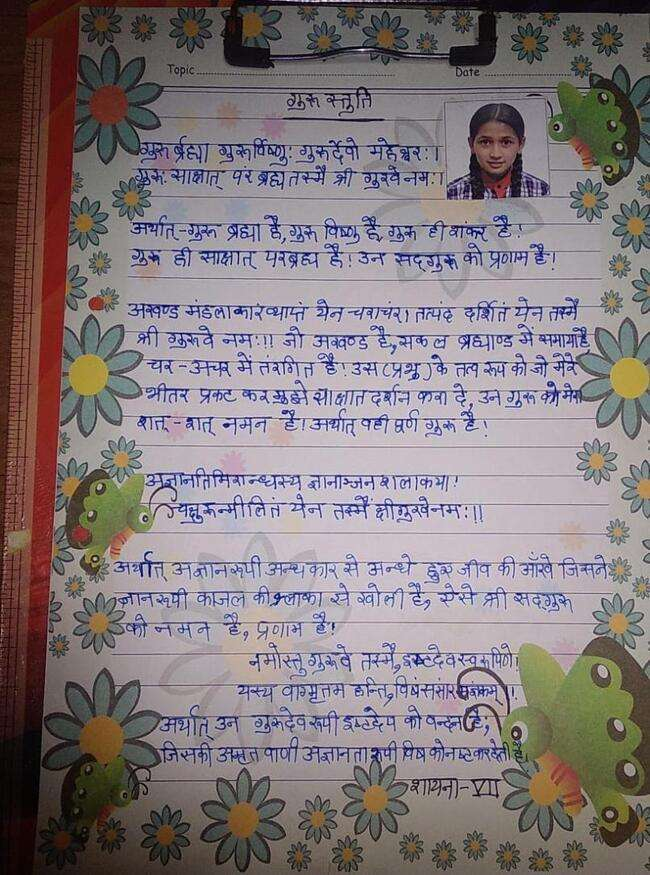 Topic
Date
गुरू स्तुति
गुरूर्ब्रह्मा गुरूर्विष्णुः गुरूर्देवो महेश्वरः।
गुरू साक्षात् पर ब्रह्म तस्मै श्री गुरुवे नमः।
अर्थात्-गुरू ब्रह्मा है, गुरू विष्णु है, गुरू ही शंकर है!
गुरू ही साक्षात् परब्रह्म है! उन सद्गुरू को प्रणाम है!
अखण्ड मंडलाकारं व्याप्तं येन चराचरं। तत्पदं दर्शितं येन तस्मै
श्री गुरूवे नमः!! जो अखण्ड है, सकल ब्रह्माण्ड में समाया है
चर-अचर में तरंगित है! उस (प्रभु) के तत्व रूप को जो मेरे
भीतर प्रकट कर मुझे साक्षात दर्शन करा दे, उन गुरू को मेरा
शत्-शत् नमन है! अर्थात् वही पूर्ण गुरू है!
अज्ञानतिमिरान्धस्य ज्ञानाञ्जन शलाकया!
चक्षुरुन्मीलितं येन तस्मैं श्रीगुरुवेनमः!!
अर्थात् अज्ञान रूपी अन्धकार से अन्धे हुए जीव की आँखे जिसने
ज्ञानरूपी काजल की श्लाका से खोली है, ऐसे श्री सद्गुरू
को नमन है, प्रणाम है!
नमोस्तु गुरूवे तस्मै, इष्टदेव स्वरूपिणे!
यस्य वागमृतम हन्ति, विषं संसार
अर्थात् उन गुरुदेव रूपी इष्टदेव को वन्दन है,
जिसकी अमृत वाणी अज्ञानता रूपी विष को नष्ट कर देती है!
शायना-VII